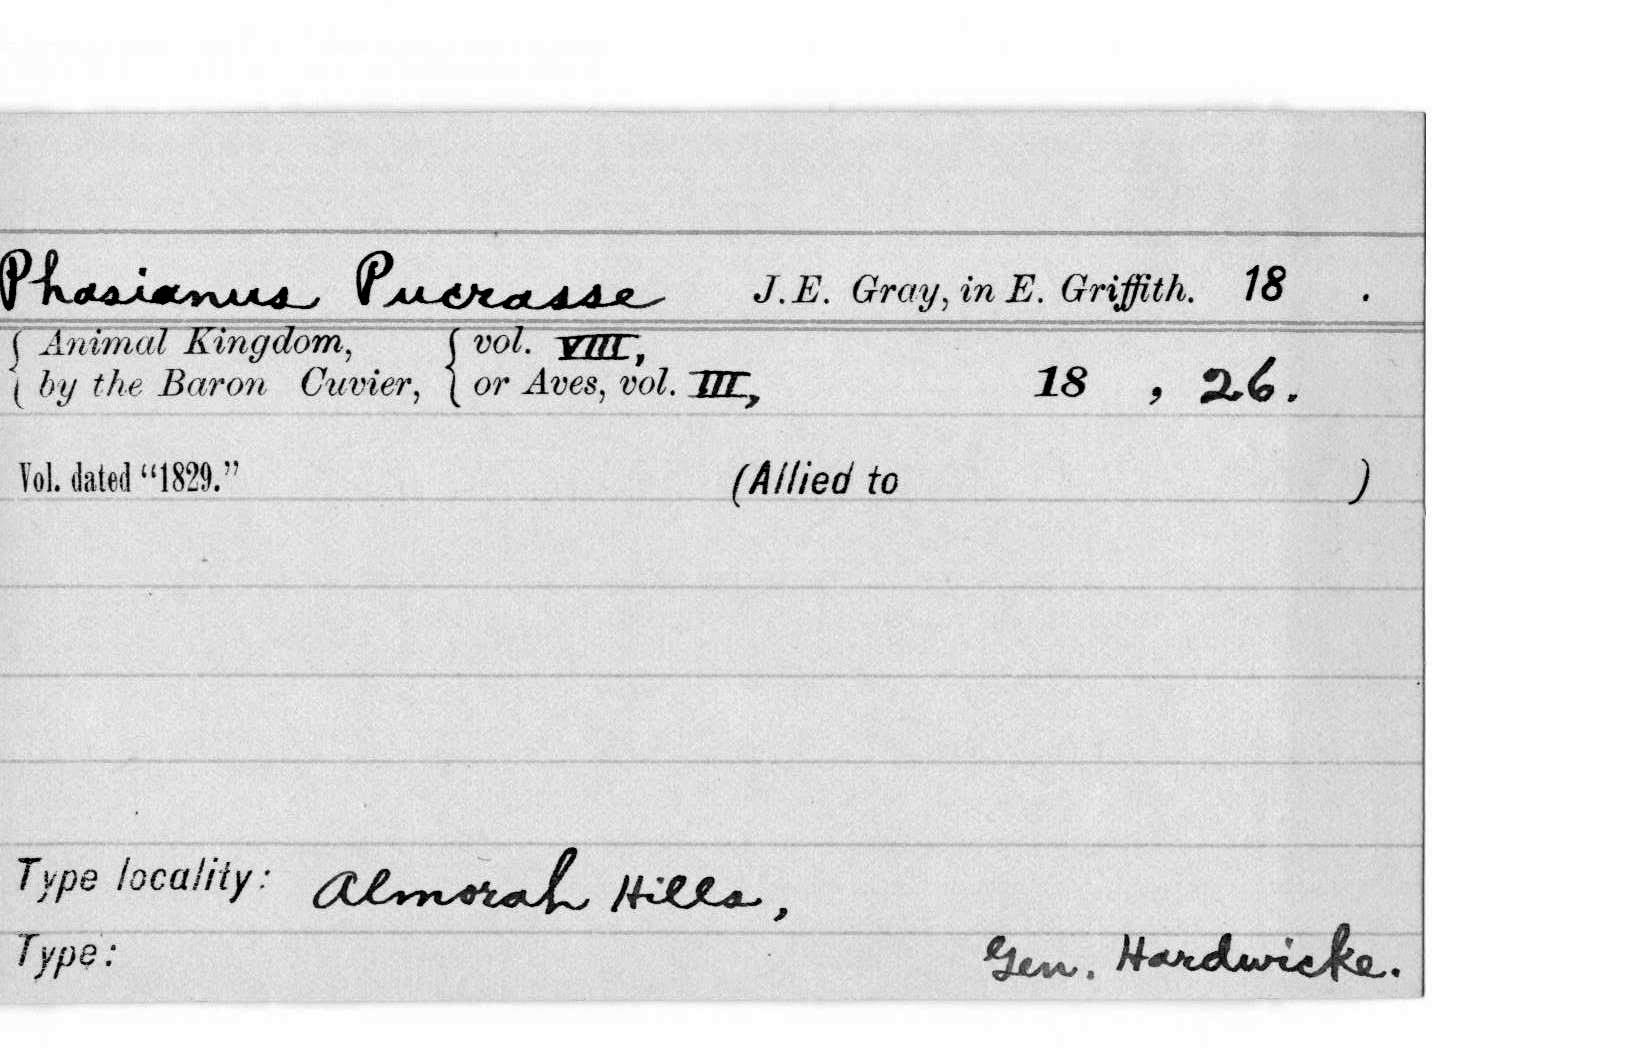 Phasianus Pucrasse J. E. Gray, in E. Griffith. 18 .
{ Animal Kingdom, { vol. VIII,
{ by the Baron Cuvier, { or Aves, vol. III, 18 , 26.
Vol. dated “1829.” (Allied to )
Type locality: Almorah Hills,
Type: Gen. Hardwicke.